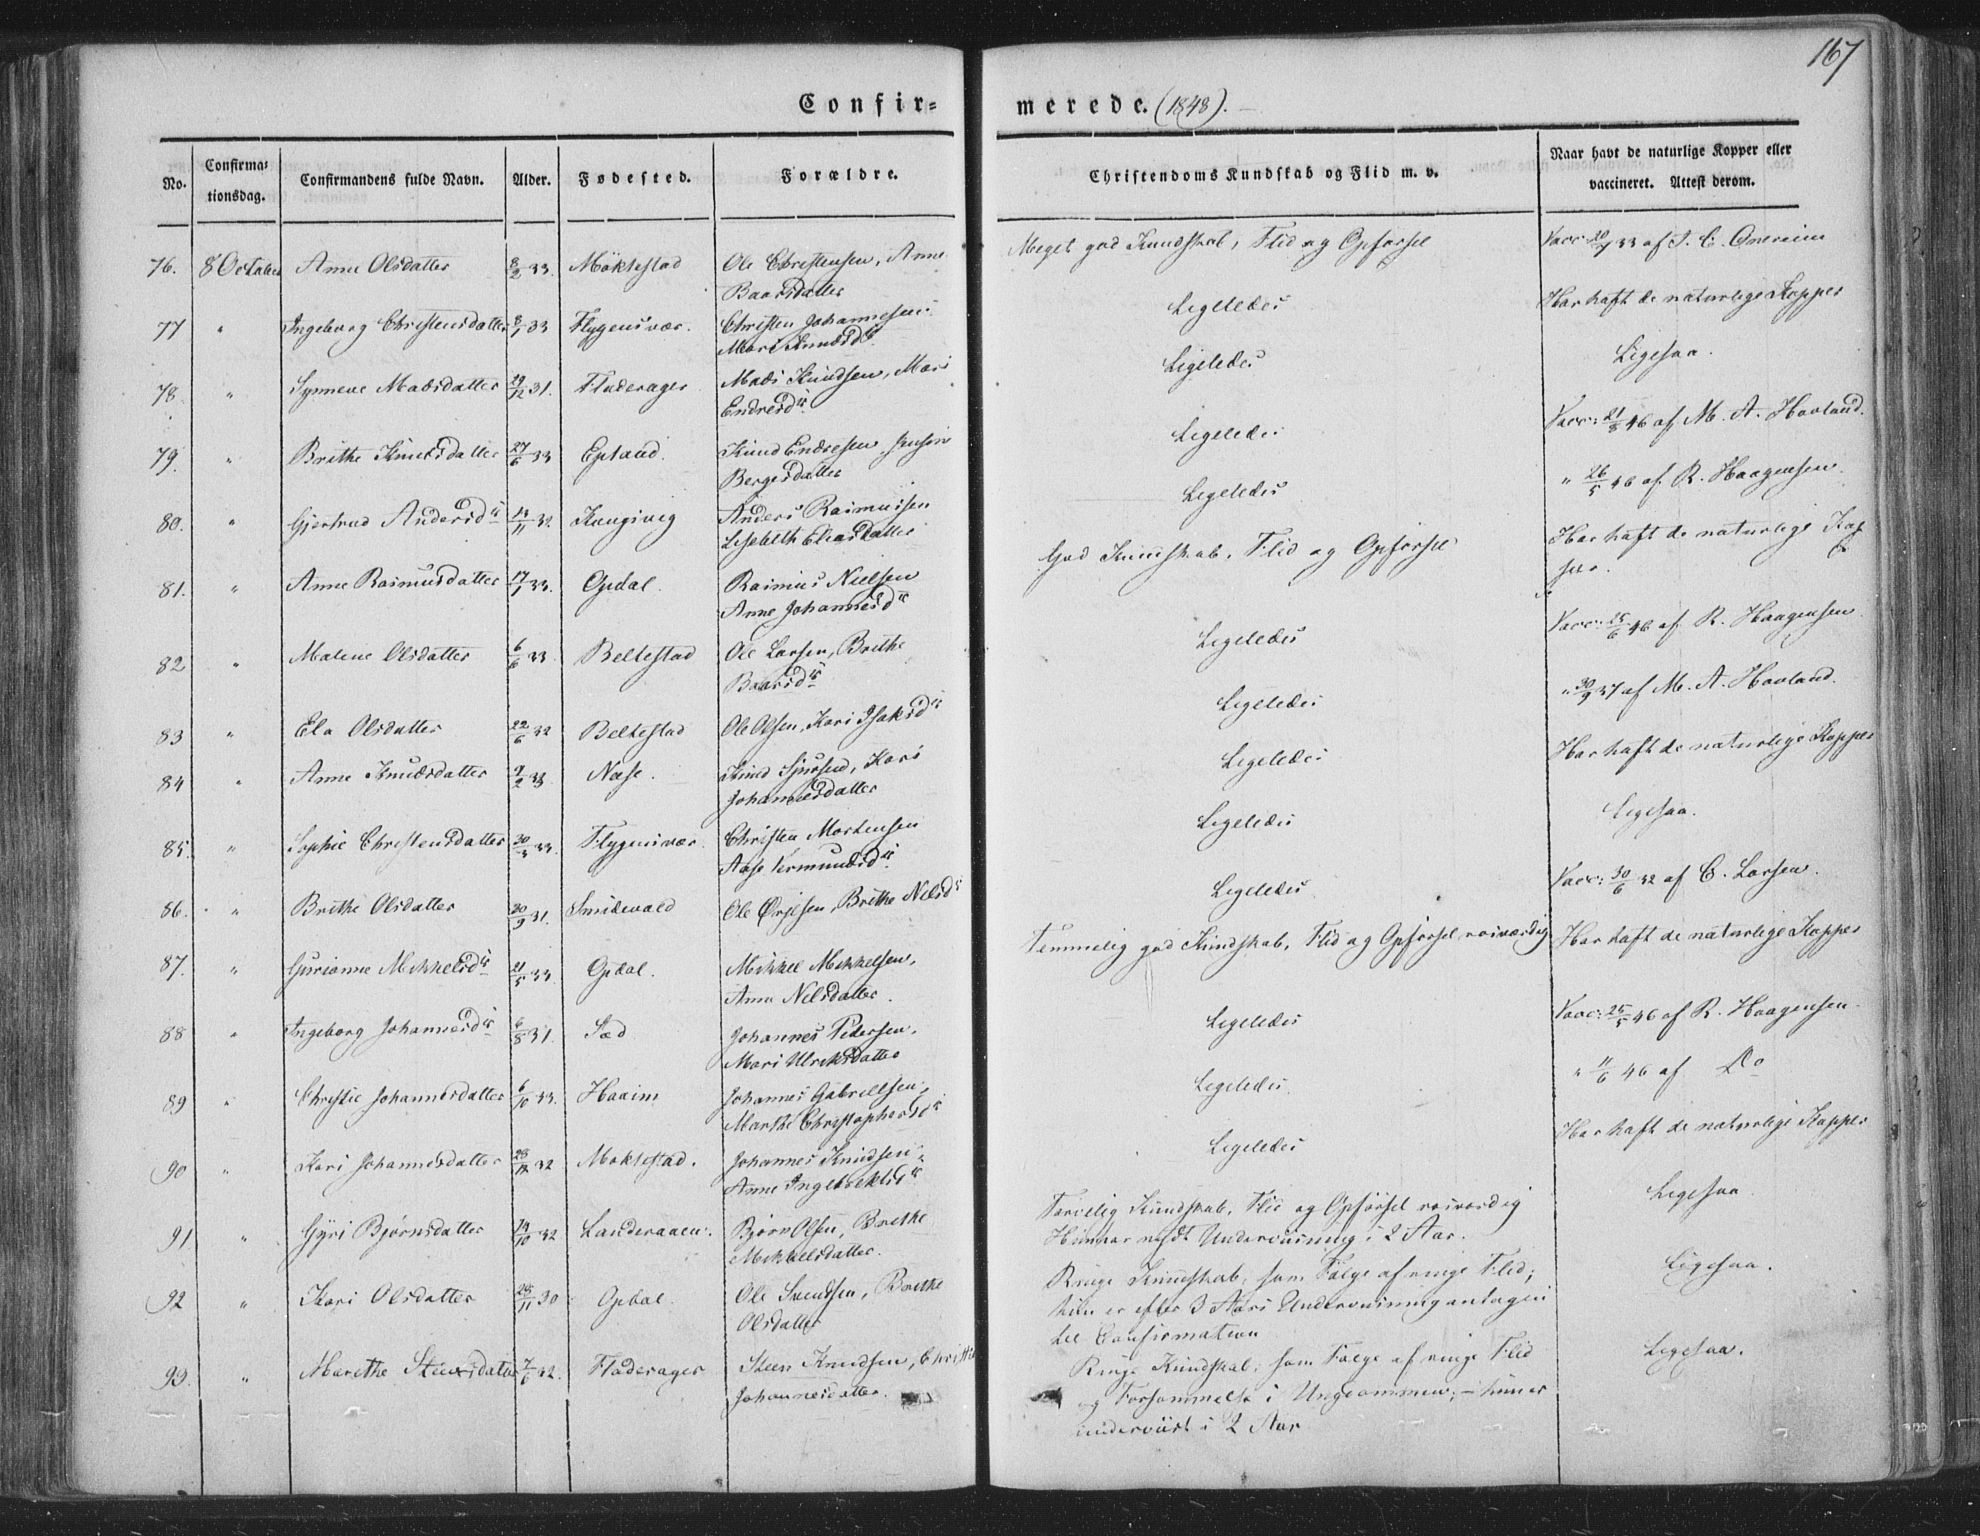 167
Confir=
merede. (1848).
No.
Confirma=
tionsdag.
Confirmandens fulde Navn.
Alder.
Fødested.
Forældre.
Christendoms Kundskab og Flid m. v.
Naar havt de naturlige Kopper eller
vaccineret. Attest derom.
76. 8 October Anne Olsdatter 8/2 33. Möktestad Ole Christensen, Anne
Baarsdatter
Meget god Kundskab, Flid og Opførsel
Vacc: 20/7 33 af J. C.
77 " Ingeborg Christensdatter 8/1 33 Flygensvær. Christen Johannesen.
Mari Knudsd
Ligeledes
Har haft de naturlige Kopper
78. " Synneve Madsdatter 29/12 31. Fladerager Mads Knudsen, Mari
Endresd
Ligeledes
Ligesaa.
79. " Brithe Knudsdatter 27/6 33 Epland. Knud Endresen
Bergesdatter
Ligeledes
Vacc: 21/8 46 af M. A. Havland.
80. " Gjertrud Andersd 13/11 32. Anders Rasmusen
Lisebeth Eliasdatter
Ligeledes
" 26/5 46 af R. Haagensen.
81. " Anne Rasmusdatter 17/1 33. Opdal. Rasmus Nielsen
Anne Johannesd
God Kundskab, Flid og Opførsel
Har haft de naturlige Kop
per.
82 " Malene Olsdatter 6/6 33 Beltestad Ole Larsen, Brithe
Baarsd
Ligeledes
Vacc: 25/6 46 af R. Haagensen.
83 " Ela Olsdatter 22/6 32 Beltestad Ole Olsen, Kari Isaksd
Ligeledes
" 30/9 37 af M. A. Havland.
84 " Anne Knudsdatter 9/2 33. Næse. Knud Sjursen, Kari
Johannesdatter
Ligeledes
Har haft de naturlige Kopper
85. " Sophie Christensdatter 30/3 33. Flygensvær. Christen Mortensen
Aase Vermundsd
Ligeledes
Ligesaa.
86. " Brithe Olsdatter 20/9 31. Smidevald Ole Ørjesen, Brithe Nilsd
Ligeledes
Vacc: 30/6 32 af C. Larsen.
87. " Gurianne Mikkelsd 21/5 33. Opdal. Mikkel Mikkelsen,
Anna Nilsdatter.
Temmelig god Kundskab, Flid og Opførsel rosværdig
Har haft de naturlige Kopper
88 " Ingeborg Johannesd 6/8 31. Sæd Johannes Pedersen,
Mari Ulriksdatter
Ligeledes
Vacc: 25/5 46 af R. Haagensen.
89 " Christie Johannesdatter 6/10 33. Haaim Johannes Gabrielsen,
Marthe Christophersd
Ligeledes
" 11/6 46 af Do
90 " Kari Johannesdatter 28/12 32 Moktestad. Johannes Knudsen,
Anne Ingebrektsd
Ligeledes
Har haft de naturlige Kopper
91 " Gyri Bjørnsdatter 14/10 32 Landeraaen. Bjørn Olsen, Brithe
Mikkelsdatter.
Tarvelig Kundskab, Flid og Opførsel rosværdig
Hun har nydt Underviisning i 2 Aar.
Ligesaa
92 " Kari Olsdatter 28/11 30 Opdal. Ole Svendsen, Brithe
Olsdatter
Ringe Kundskab, som Følge af ringe Flid;
hun er efter 3 Aars Underviisning antagen
til Confirmation
Ligesaa.
93. " Marethe Steensdatter 7/6 32. Fladerager Steen Knudsen, Christie
Johannesdatter.
Ringe Kundskab; som Følge af ringe Flid
og Forsømmelse i Ungdommen; – hun er
underviist i 2 Aar
Ligesaa.